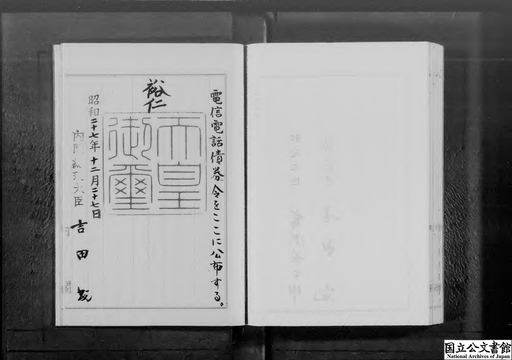 電信電話債券令をここに公布する。
裕仁
天皇御璽
昭和二十七年十二月二十七日
内閣総理大臣 吉田茂
内閣
国立公文書館
National Archives of Japan